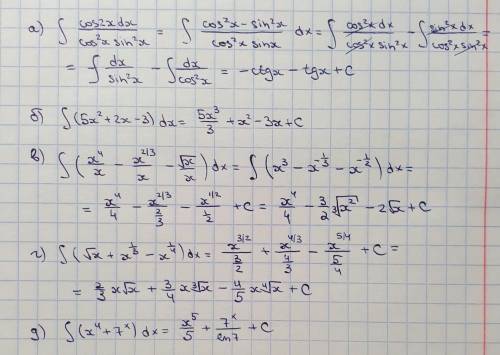 а) ∫ cos2x dx / cos²x sin²x = ∫ cos²x − sin²x / cos²x sinx dx = ∫ cos²x dx / cos²x sin²x − ∫ sin²x dx / cos²x sin²x =
= ∫ dx / sin²x − ∫ dx / cos²x = −ctgx − tgx + C
б) ∫(5x² + 2x − 3) dx = 5x³/3 + x² − 3x + C
в) ∫(x⁴/x − x^(2/3)/x − √x/x) dx = ∫(x³ − x^(−1/3) − x^(−1/2)) dx =
= x⁴/4 − x^(2/3)/(2/3) − x^(1/2)/(1/2) + C = x⁴/4 − 3/2 ∛x² − 2√x + C
г) ∫(√x + x^(1/3) − x^(1/4)) dx = x^(3/2)/(3/2) + x^(4/3)/(4/3) − x^(5/4)/(5/4) + C =
= 2/3 x√x + 3/4 x∛x − 4/5 x∜x + C
д) ∫(x⁴ + 7ˣ) dx = x⁵/5 + 7ˣ/ln7 + C